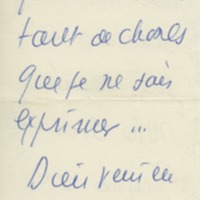 tant de choses
que je ne sais
exprimer...
Dieu